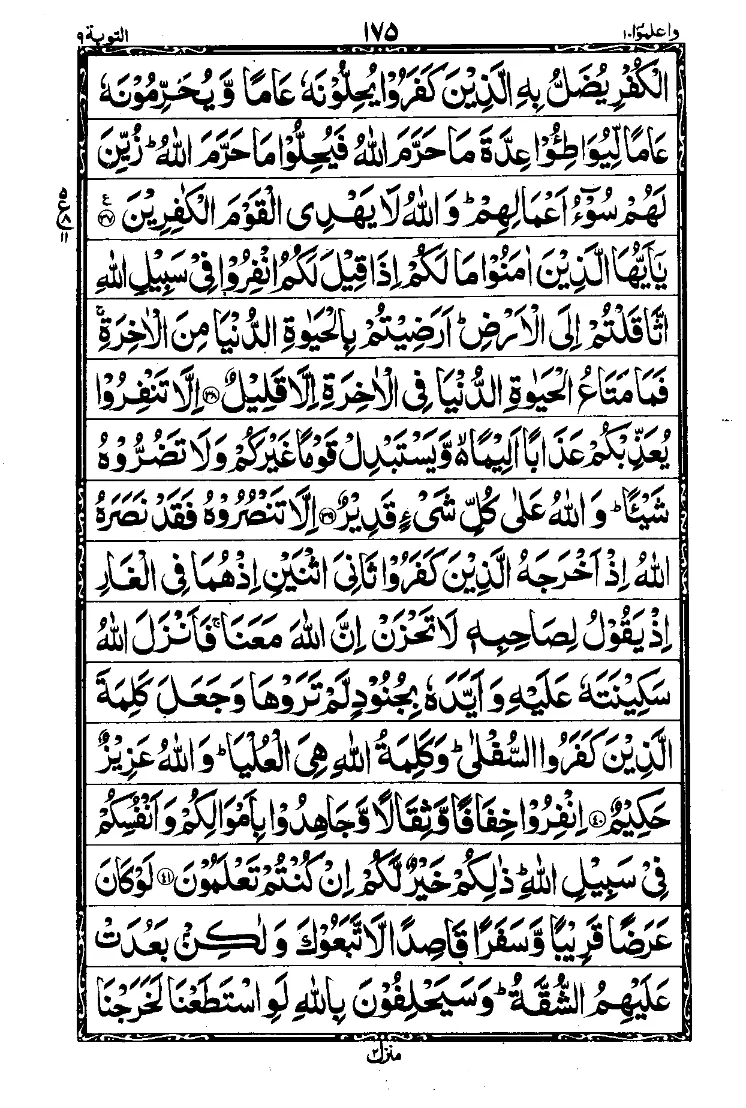 واعلموا١٠ ١٧٥ التوبة٩
الْكُفْرِ يُضَلُّ بِهِ الَّذِيْنَ كَفَرُوْا يُحِلُّوْنَهٗ عَامًا وَّ يُحَرِّمُوْنَهٗ
عَامًا لِّيُوَاطِـُٔوْا عِدَّةَ مَا حَرَّمَ اللّٰهُ فَيُحِلُّوْا مَا حَرَّمَ اللّٰهُ ؕ زُيِّنَ
لَهُمْ سُوْٓءُ اَعْمَالِهِمْ ؕ وَ اللّٰهُ لَا يَهْدِى الْقَوْمَ الْكٰفِرِيْنَ ۧ‏﴿٣٧﴾
٥ ع ٨ ١١
يٰۤاَيُّهَا الَّذِيْنَ اٰمَنُوْا مَا لَكُمْ اِذَا قِيْلَ لَكُمُ انْفِرُوْا فِىْ سَبِيْلِ اللّٰهِ
اثَّاقَلْتُمْ اِلَى الْاَرْضِ ؕ اَرَضِيْتُمْ بِالْحَيٰوةِ الدُّنْيَا مِنَ الْاٰخِرَةِ ۚ
فَمَا مَتَاعُ الْحَيٰوةِ الدُّنْيَا فِى الْاٰخِرَةِ اِلَّا قَلِيْلٌ ﴿٣٨﴾ اِلَّا تَنْفِرُوْا
يُعَذِّبْكُمْ عَذَابًا اَلِيْمًا ۙ۬ وَّيَسْتَبْدِلْ قَوْمًا غَيْرَكُمْ وَلَا تَضُرُّوْهُ
شَيْـًٔا ؕ وَ اللّٰهُ عَلٰى كُلِّ شَىْءٍ قَدِيْرٌ ﴿٣٩﴾ اِلَّا تَنْصُرُوْهُ فَقَدْ نَصَرَهُ
اللّٰهُ اِذْ اَخْرَجَهُ الَّذِيْنَ كَفَرُوْا ثَانِىَ اثْنَيْنِ اِذْ هُمَا فِى الْغَارِ
اِذْ يَقُوْلُ لِصَاحِبِهٖ لَا تَحْزَنْ اِنَّ اللّٰهَ مَعَنَا ۚ فَاَنْزَلَ اللّٰهُ
سَكِيْنَتَهٗ عَلَيْهِ وَ اَيَّدَهٗ بِجُنُوْدٍ لَّمْ تَرَوْهَا وَجَعَلَ كَلِمَةَ
الَّذِيْنَ كَفَرُوا السُّفْلٰى ؕ وَكَلِمَةُ اللّٰهِ هِىَ الْعُلْيَا ؕ وَ اللّٰهُ عَزِيْزٌ
حَكِيْمٌ ﴿٤٠﴾ اِنْفِرُوْا خِفَافًا وَّثِقَالًا وَّجَاهِدُوْا بِاَمْوَالِكُمْ وَاَنْفُسِكُمْ
فِىْ سَبِيْلِ اللّٰهِ ؕ ذٰلِكُمْ خَيْرٌ لَّكُمْ اِنْ كُنْتُمْ تَعْلَمُوْنَ ﴿٤١﴾ لَوْ كَانَ
عَرَضًا قَرِيْبًا وَّسَفَرًا قَاصِدًا لَّاتَّبَعُوْكَ وَ لٰكِنْۢ بَعُدَتْ
عَلَيْهِمُ الشُّقَّةُ ؕ وَسَيَحْلِفُوْنَ بِاللّٰهِ لَوِ اسْتَطَعْنَا لَخَرَجْنَا
منزل٢